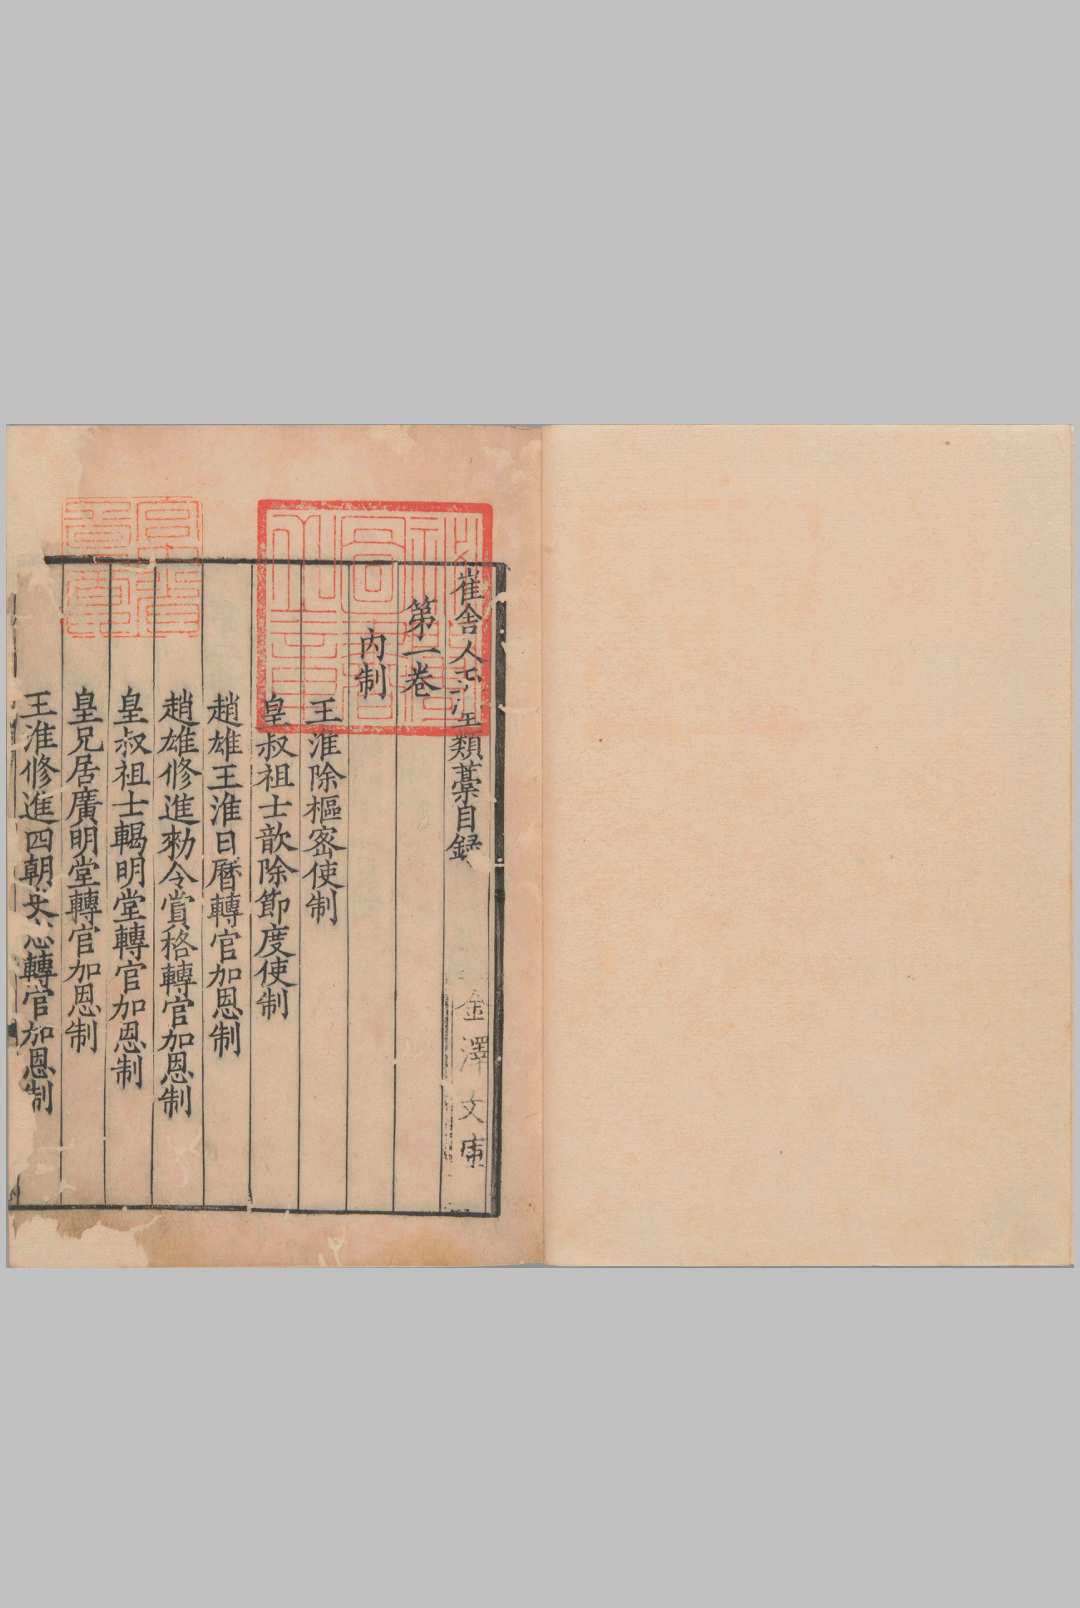 崔舍人玉堂類藁目録
金澤文庫
第一卷
内制
王淮除樞密使制
皇叔祖士歆除節度使制
趙雄王淮日曆轉官加恩制
趙雄修進勑令賞格轉官加恩制
皇叔祖士輵明堂轉官加恩制
皇兄居廣明堂轉官加恩制
王淮修進四朝史志轉官加恩制